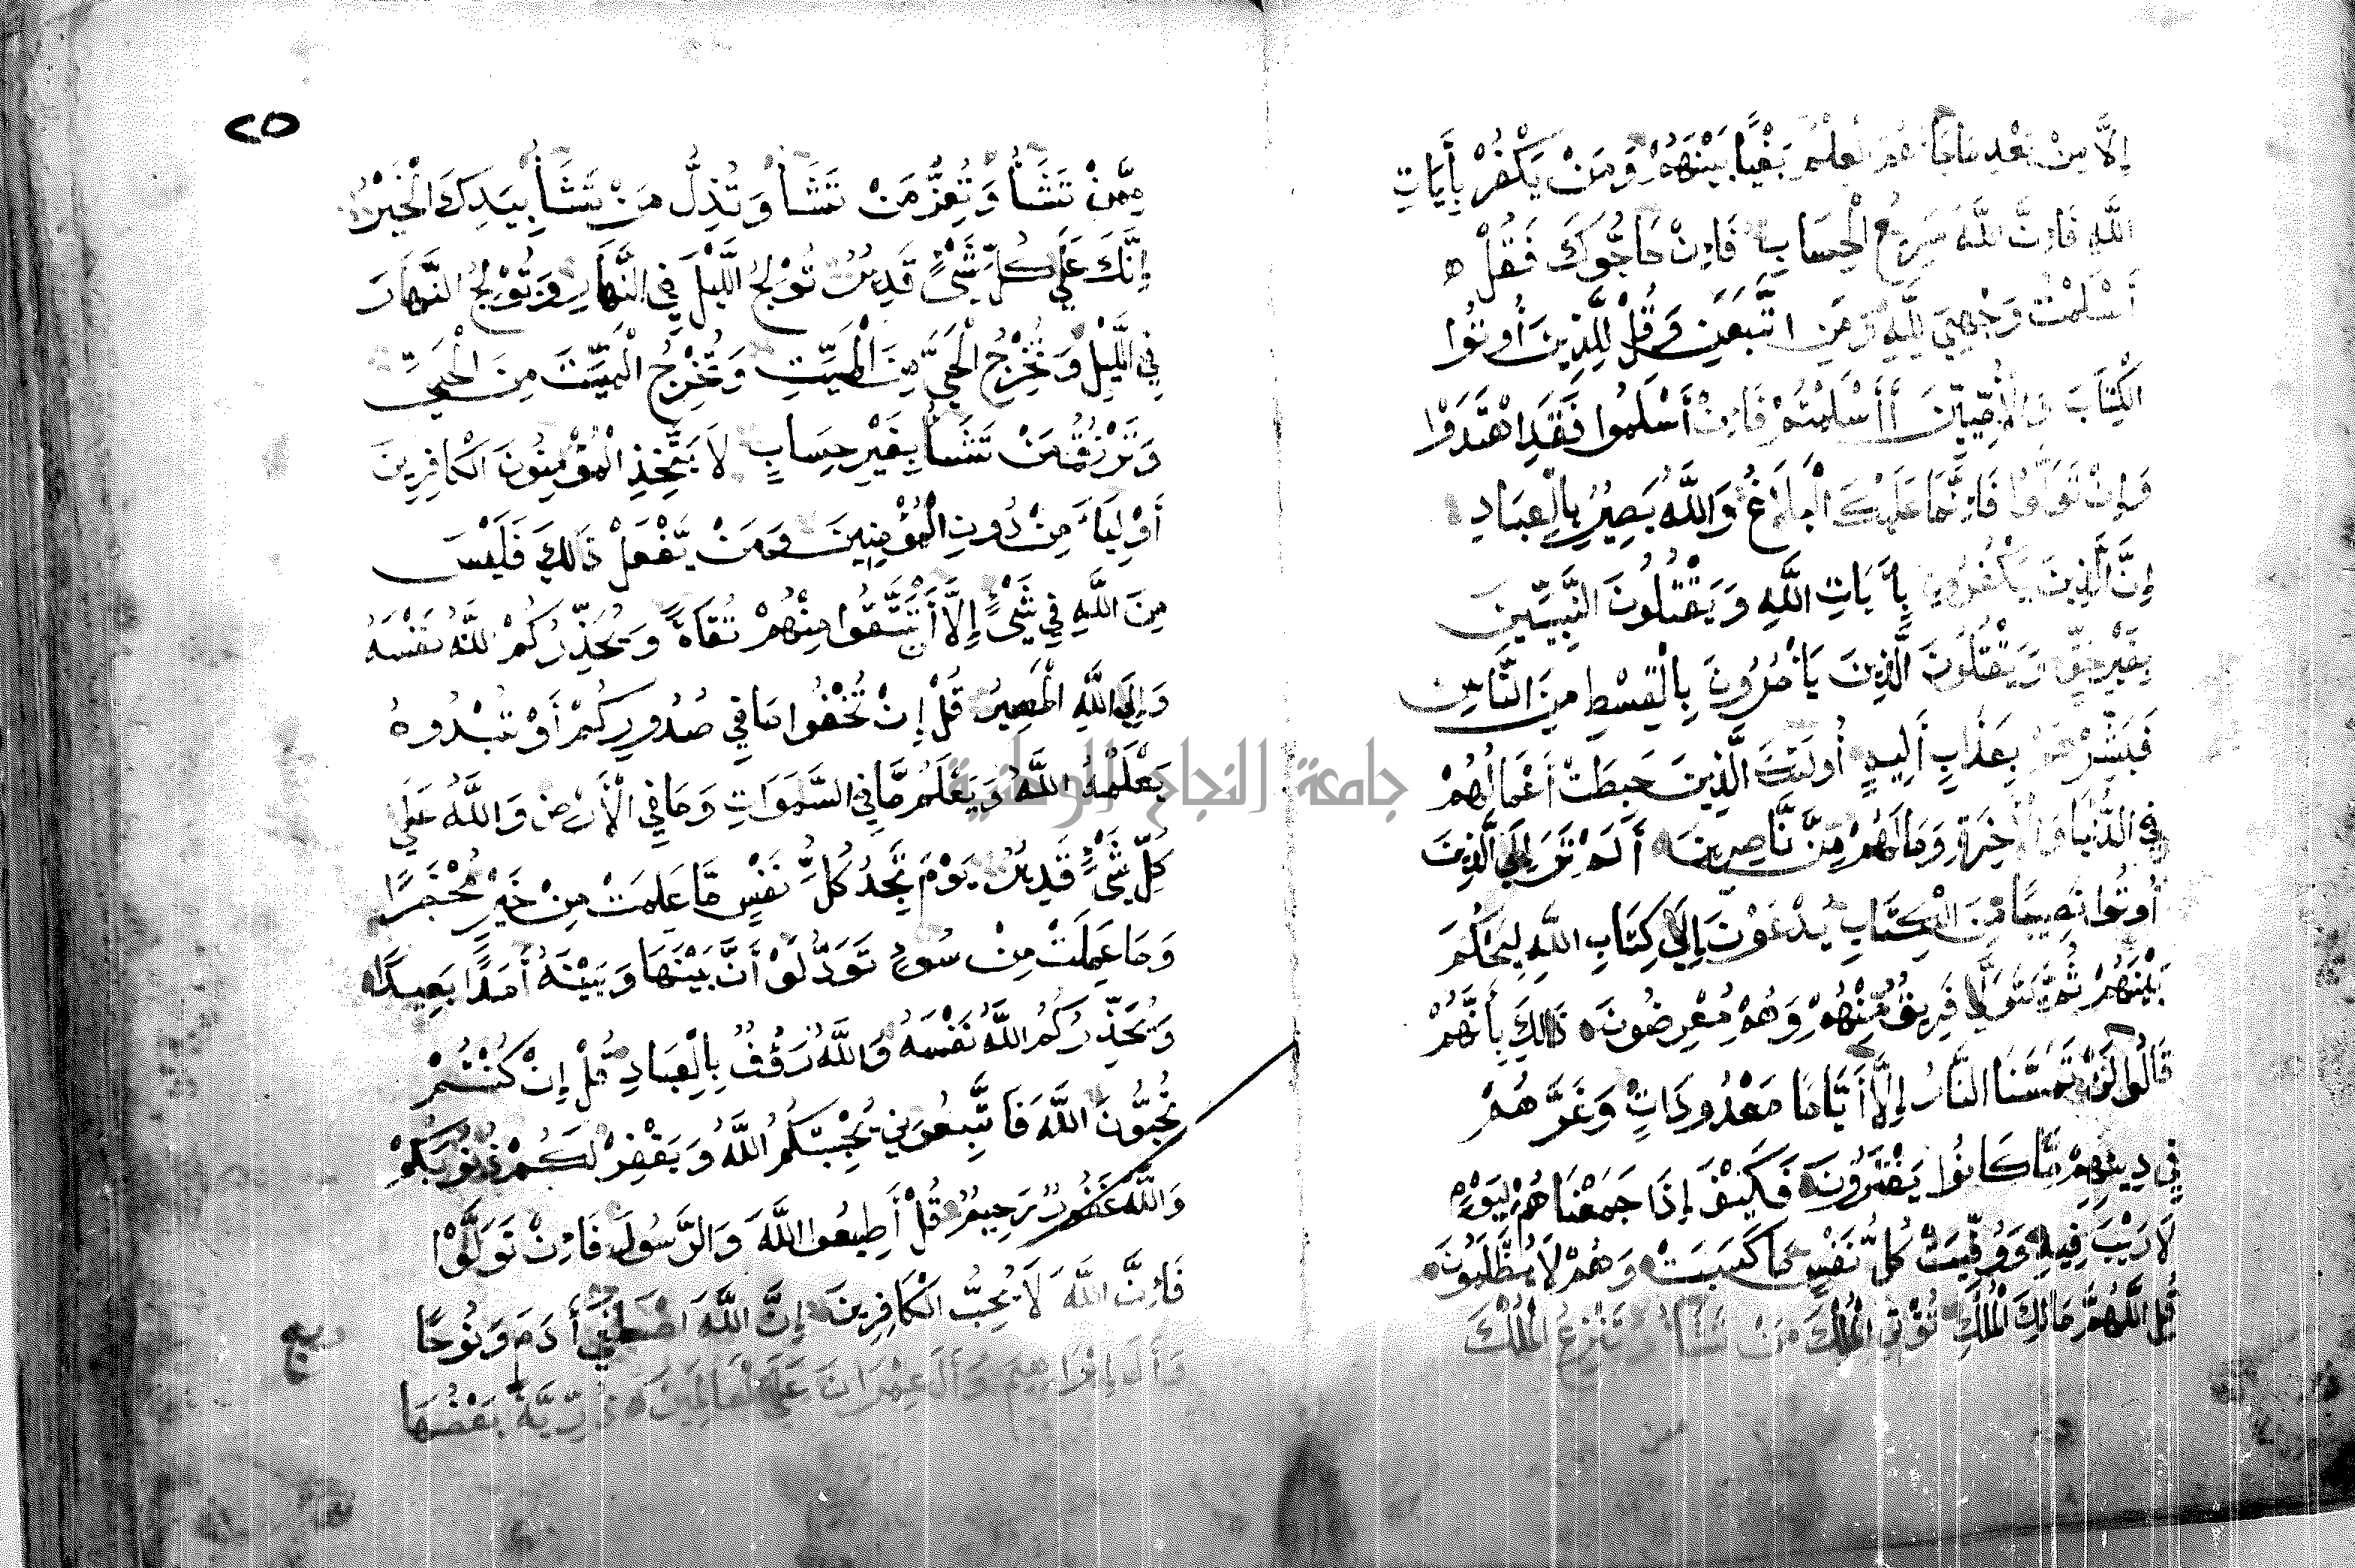 إِلَّا مِنْ بَعْدِ مَا جَاءَهُمُ الْعِلْمُ بَغْيًا بَيْنَهُمْ وَمَنْ يَكْفُرْ بِأَيَاتِ
اللَّهِ فَإِنَّ اللَّهَ سَرِيعُ الْحِسَابِ فَإِنْ حَاجُّوكَ فَقُلْ
أَسْلَمْتُ وَجْهِيَ لِلَّهِ وَمَنِ اتَّبَعَنِ وَقُلْ لِلَّذِينَ أُوتُوا
الْكِتَابَ وَالْأُمِّيِّينَ أَأَسْلَمْتُمْ فَإِنْ أَسْلَمُوا فَقَدِ اهْتَدَوْا
وَإِنْ تَوَلَّوْا فَإِنَّمَا عَلَيْكَ الْبَلَاغُ وَاللَّهُ بَصِيرٌ بِالْعِبَادِ
إِنَّ الَّذِينَ يَكْفُرُونَ بِأَيَاتِ اللَّهِ وَيَقْتُلُونَ النَّبِيِّينَ
بِغَيْرِ حَقٍّ وَيَقْتُلُونَ الَّذِينَ يَأْمُرُونَ بِالْقِسْطِ مِنَ النَّاسِ
فَبَشِّرْهُمْ بِعَذَابٍ أَلِيمٍ أُولَئِكَ الَّذِينَ حَبِطَتْ أَعْمَالُهُمْ
فِي الدُّنْيَا وَالْأَخِرَةِ وَمَا لَهُمْ مِنْ نَّاصِرِينَ أَلَمْ تَرَ إِلَى الَّذِينَ
أُوتُوا نَصِيبًا مِنَ الْكِتَابِ يُدْعَوْنَ إِلَى كِتَابِ اللَّهِ لِيَحْكُمَ
بَيْنَهُمْ ثُمَّ يَتَوَلَّى فَرِيقٌ مِنْهُمْ وَهُمْ مُعْرِضُونَ ذَلِكَ بِأَنَّهُمْ
قَالُوا لَنْ تَمَسَّنَا النَّارُ إِلَّا أَيَّامًا مَعْدُودَاتٍ وَغَرَّهُمْ
فِي دِينِهِمْ مَّا كَانُوا يَفْتَرُونَ فَكَيْفَ إِذَا جَمَعْنَاهُمْ لِيَوْمٍ
لَا رَيْبَ فِيهِ وَوُفِّيَتْ كُلُّ نَفْسٍ مَّا كَسَبَتْ وَهُمْ لَا يُظْلَمُونَ
قُلِ اللَّهُمَّ مَالِكَ الْمُلْكِ تُؤْتِي الْمُلْكَ مَنْ تَشَأُ وَتَنْزِعُ الْمُلْكَ
٢٥
مِمَّنْ تَشَأُ وَتُعِزُّ مَنْ تَشَأُ وَتُذِلُّ مَنْ تَشَأُ بِيَدِكَ الْخَيْرُ
إِنَّكَ عَلَى كُلِّ شَيْءٍ قَدِيرٌ تُوْلِجُ اللَّيْلَ فِي النَّهَارِ وَتُوْلِجُ النَّهَارَ
فِي اللَّيْلِ وَتُخْرِجُ الْحَيَّ مِنَ الْمَيِّتِ وَتُخْرِجُ الْمَيِّتَ مِنَ الْحَيِّ
وَتَرْزُقُ مَنْ تَشَأُ بِغَيْرِ حِسَابٍ لَا يَتَّخِذِ الْمُؤْمِنُونَ الْكَافِرِينَ
أَوْلِيَاءَ مِنْ دُونِ الْمُؤْمِنِينَ وَمَنْ يَّفْعَلْ ذَالِكَ فَلَيْسَ
مِنَ اللَّهِ فِي شَيْءٍ إِلَّا أَنْ تَتَّقُوا مِنْهُمْ تُقَاةً وَيُحَذِّرُكُمُ اللَّهُ نَفْسَهُ
وَإِلَى اللَّهِ الْمَصِيرُ قُلْ إِنْ تُخْفُوا مَا فِي صُدُورِكُمْ أَوْ تُبْدُوهُ
يَعْلَمْهُ اللَّهُ وَيَعْلَمُ مَا فِي السَّمَوَاتِ وَمَا فِي الْأَرْضِ وَاللَّهُ عَلَى
كُلِّ شَيْءٍ قَدِيرٌ يَوْمَ تَجِدُ كُلُّ نَفْسٍ مَّا عَمِلَتْ مِنْ خَيْرٍ مُحْضَرًا
وَمَا عَمِلَتْ مِنْ سُوءٍ تَوَدُّ لَوْ أَنَّ بَيْنَهَا وَبَيْنَهُ أَمَدًا بَعِيدًا
وَيُحَذِّرُكُمُ اللَّهُ نَفْسَهُ وَاللَّهُ رَؤُفٌ بِالْعِبَادِ قُلْ إِنْ كُنْتُمْ
تُحِبُّونَ اللَّهَ فَاتَّبِعُونِي يُحْبِبْكُمُ اللَّهُ وَيَغْفِرْ لَكُمْ ذُنُوبَكُمْ
وَاللَّهُ غَفُورٌ رَحِيمٌ قُلْ أَطِيعُوا اللَّهَ وَالرَّسُولَ فَإِنْ تَوَلَّوْا
فَإِنَّ اللَّهَ لَا يُحِبُّ الْكَافِرِينَ إِنَّ اللَّهَ اصْطَفَى أَدَمَ وَنُوحًا
وَأَلَ إِبْرَاهِيمَ وَأَلَ عِمْرَانَ عَلَى الْعَالَمِينَ ذُرِّيَّةً بَعْضُهَا
ربع
جامعة النجاح الوطنية